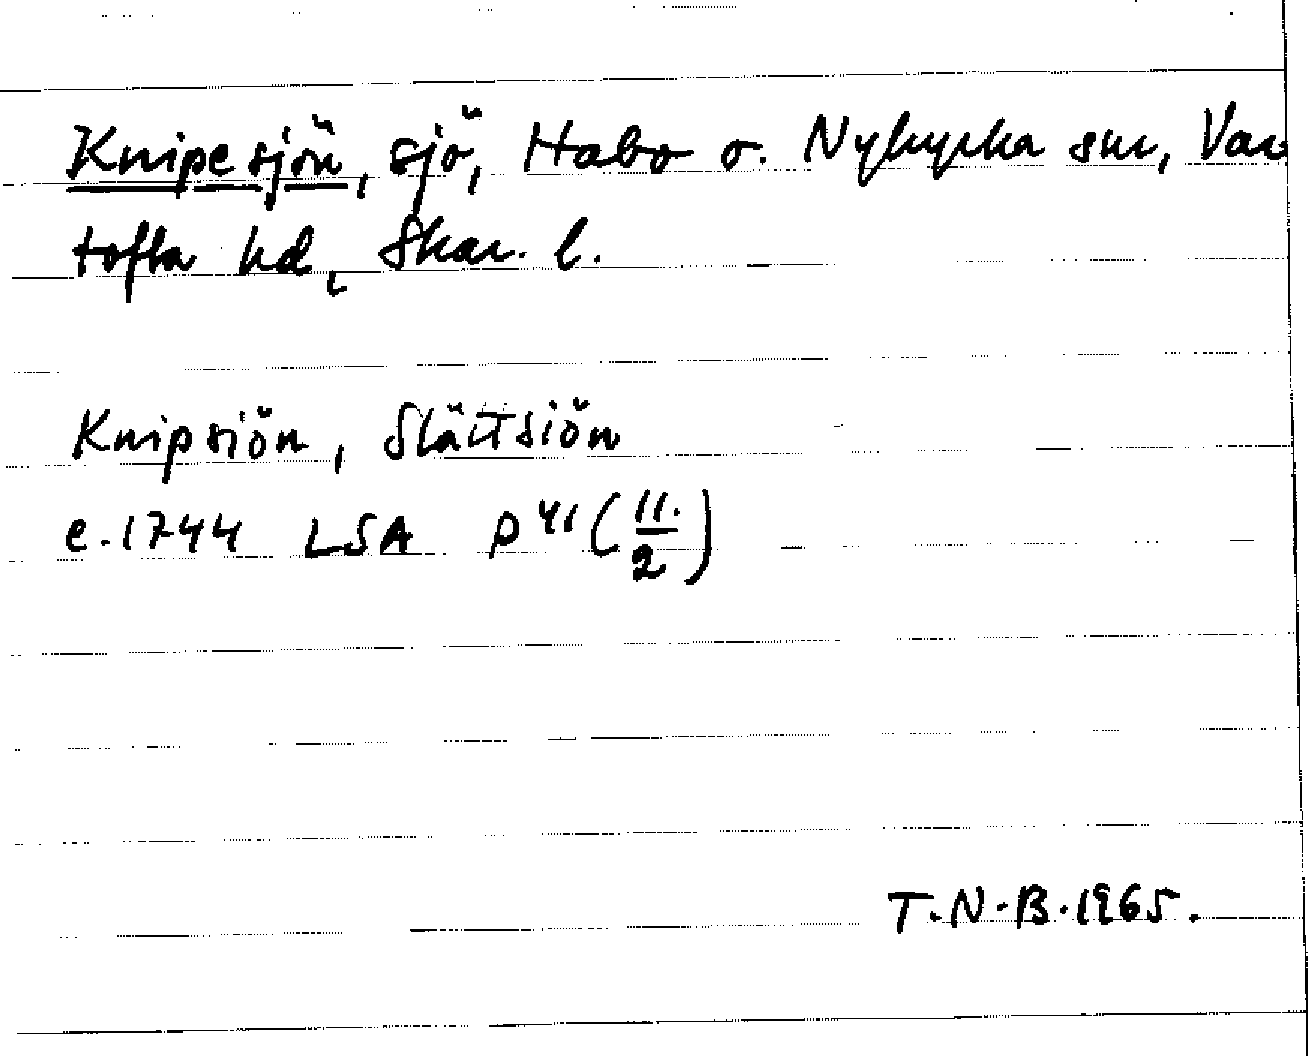 Knipesjön, sjö, Habo o. Nykyrka snr, Var
tofta hd, Skar. l.
Knipsiön, Slättsiön
e. 1744 LSA P 41 (11./2)
T.N.B. 1965.